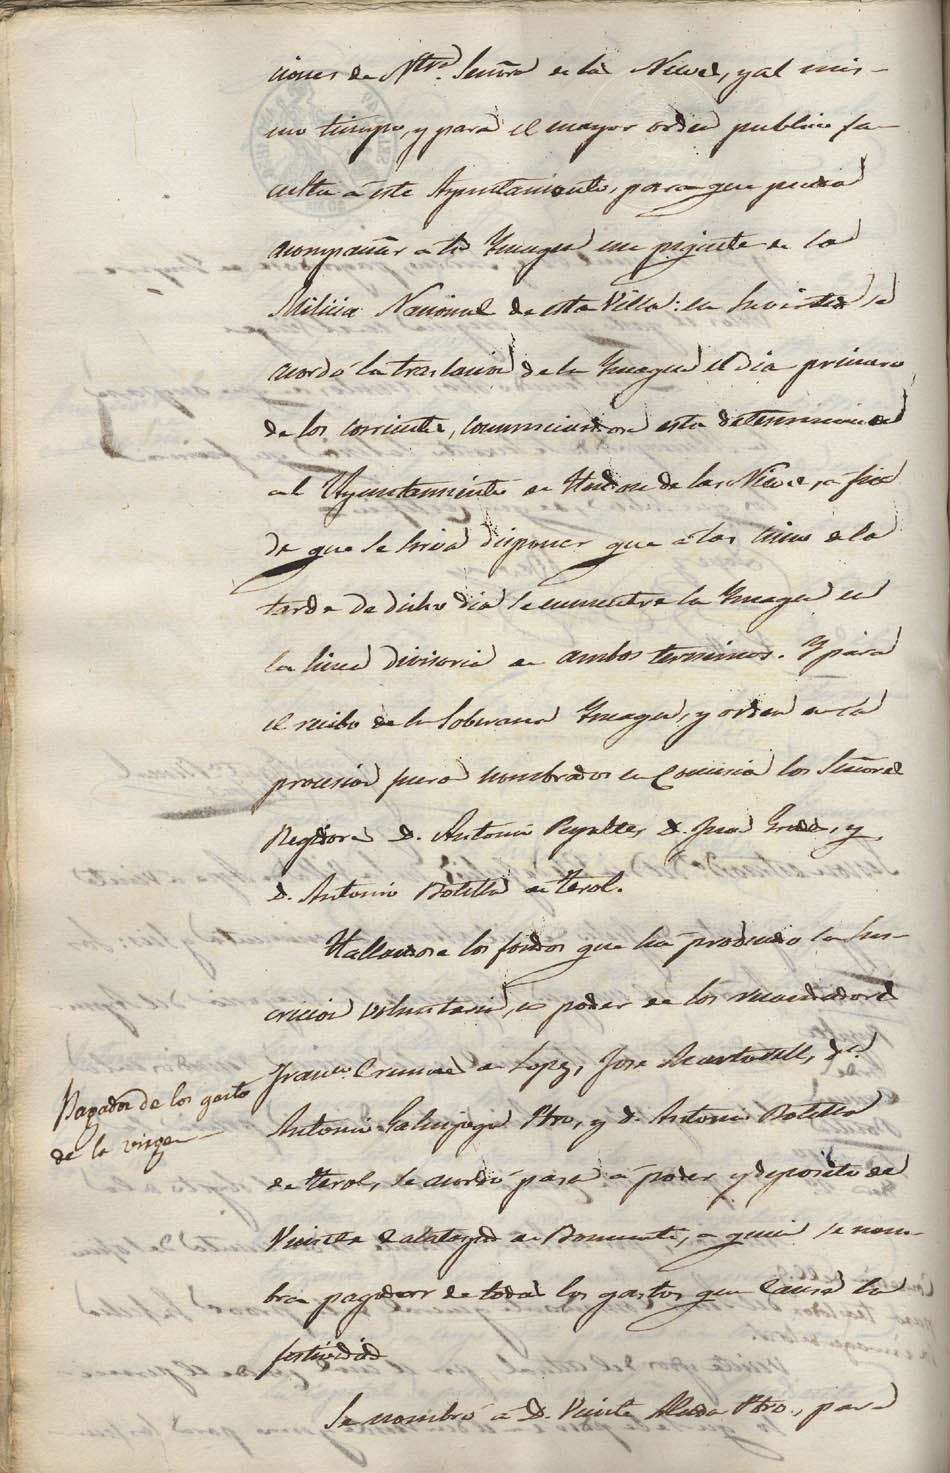 ciones de Ntra. Señora de las Nieves, y al mis-
mo tiempo, y para el mayor orden publico fa-
culta á este Ayuntamiento, para que pueda
acompañar a la Ymagen un piquete de la
Milicia Nacional de esta Villa: en su vista se
acordó la traslacion de la Ymagen el dia primero
de los corrientes, comunicandose esta determinacion
al Ayuntamiento de Hondon de las Nieves, á fin
de que se sirva disponer que á las cinco de la
tarde de dicho dia se encuentre la Ymagen en
la linea divisoria de ambos terminos. Y para
el recibo de la Soberana Ymagen, y orden en la
procesion fueron nombrados en Comision los Señores
Regidores D. Antonio D. Juan y
D. Antonio Botella de Terol.
Hallandose los fondos que ha producido la sus-
cricion voluntaria, en poder de los recaudadores
Franco. de Lopez, Jose Dn.
Antonio Pbro, y D. Antonio Botella
de Terol, se acordó pasen á poder y deposito de
Vicente Calatayud de á quien se nom-
bra pagador de todos los gastos que causa la
festividad
Se nombró á D. Vicente Pbro., para
Pagador de los gastos
de la virgen